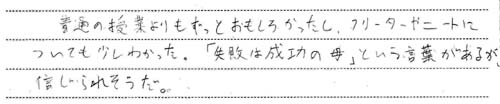 普通の授業よりもずっとおもしろかったし、フリーターやニートに
ついても少しわかった。「失敗は成功の母」という言葉があるが、
信じられそうだ。